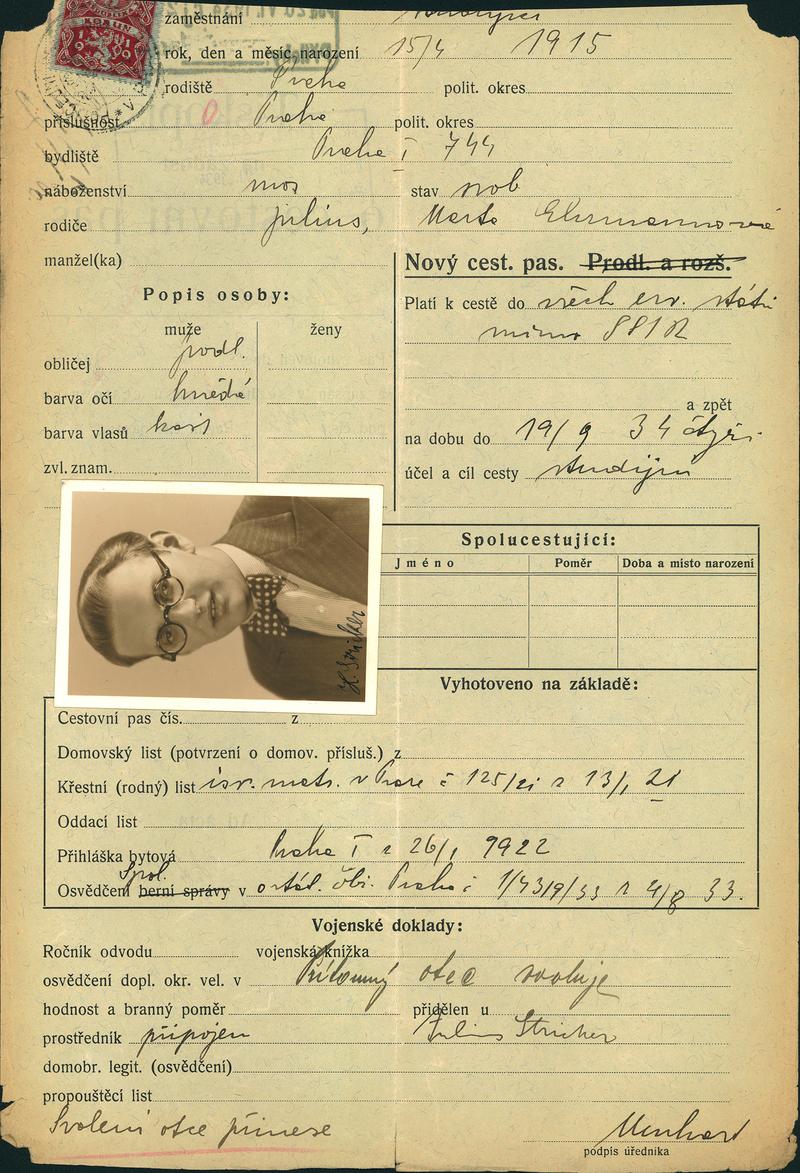 KORUN
1919
zaměstnání
rok, den a měsíc narození 15/4 1915
rodiště Praha polit. okres
příslušnost 0 Praha polit. okres
bydliště Praha I 744
náboženství mos stav svob
rodiče Julius, Marta Ehrmannová
manžel(ka)
Nový cest. pas. Prodl. a rozš.
Popis osoby:
Platí k cestě do všech evr. států
muže ženy
mimo SSSR
obličej podl.
barva očí hnědá
a zpět
barva vlasů kašt
na dobu do 19/9 34 čtyři
zvl. znam.
účel a cíl cesty studijní
Spolucestující:
Jméno Poměr Doba a místo narození
Vyhotoveno na základě:
Cestovní pas čís. z
Domovský list (potvrzení o domov. přísluš.) z
Křestní (rodný) list isr. matr. v Praze č 125/21 z 13/1 21
Oddací list
Přihláška bytová Praha I z 26/1 1922
Spol.
Osvědčení berní správy v Praha 1/4319/33 z 4/8 33.
Vojenské doklady:
Ročník odvodu vojenská knížka
osvědčení dopl. okr. vel. v Přítomný otec svoluje
hodnost a branný poměr přidělen u
prostředník připojen Julius Stricker
domobr. legit. (osvědčení)
propouštěcí list
Svolení otce přinese
podpis úředníka